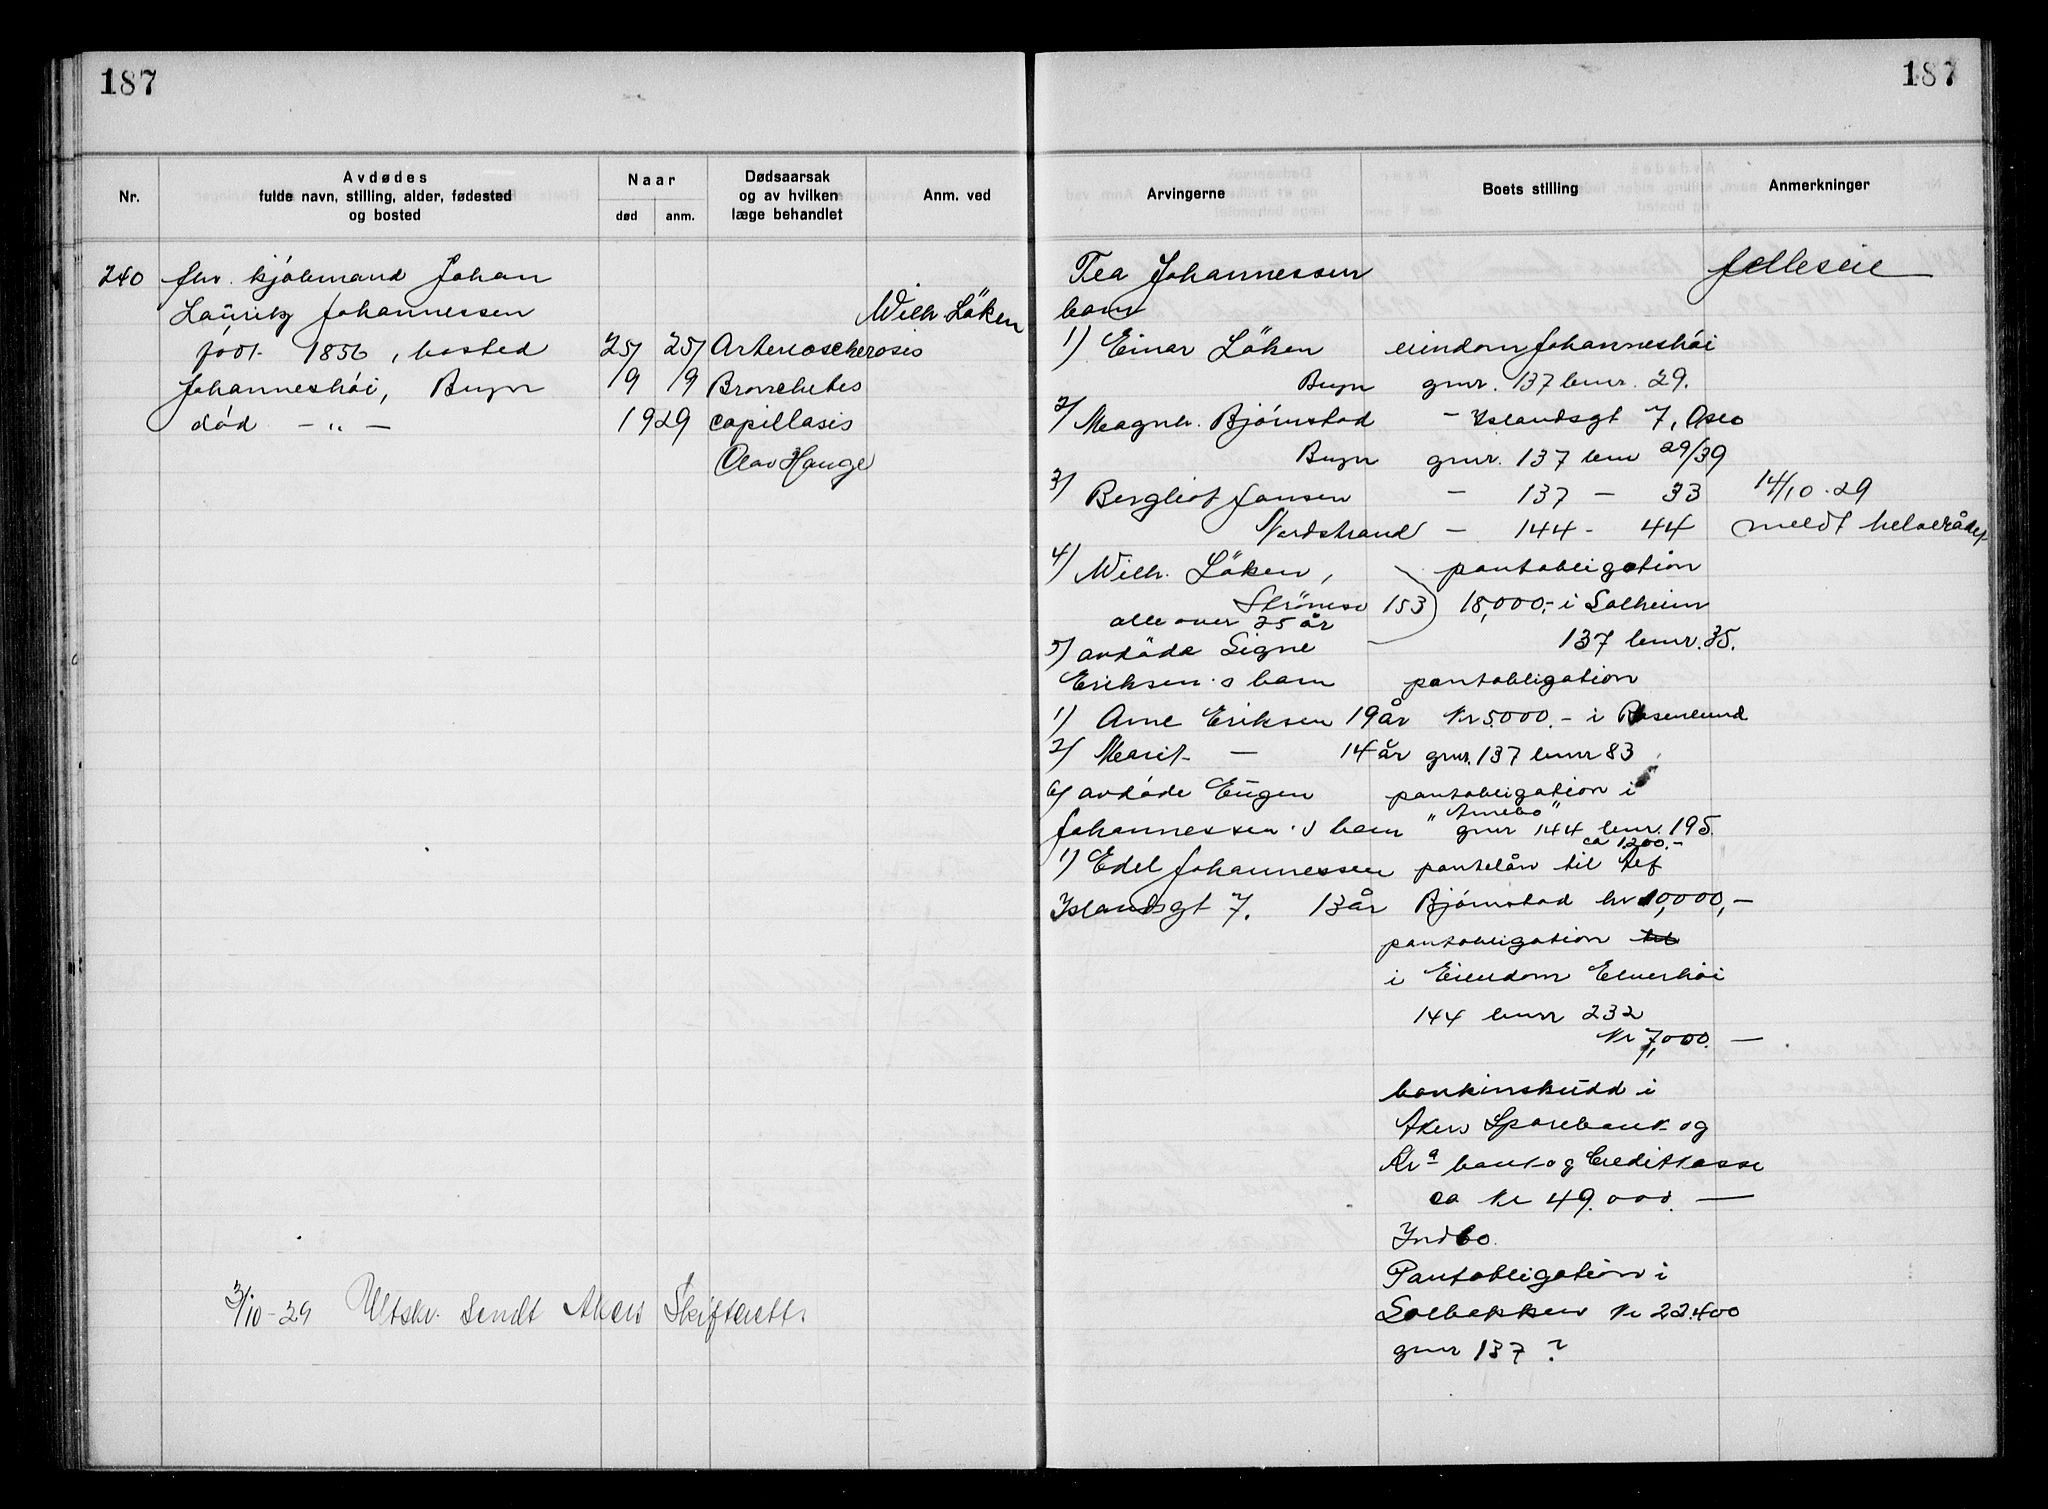 187
187
Nr.
Avdødes
fulde navn, stilling, alder, fødested
og bosted
Naar
død
anm.
Dødsaarsak
og av hvilken
læge behandlet
Anm. ved
Arvingerne
Boets stilling
Anmerkninger
240
fhv. kjøbmand Johan
Lauritz Johannessen
født 1856, bosted
Johanneshøi, Bryn
død — „ —
25/9 25/9
1929
Arterioscherosis
Bronchites
capillasis
Olav Hauge
Wilh. Löken
3/10-29 Utskr. sendt Akers Skifterett.
Tea Johannessen
barn
1) Einar Löken
Bryn
2) Magnh. Bjørnstad
Bryn
3) Bergliot Jansen
Nordstrand
4) Wilh. Löken,
153
alle over 25 år
5) avdøde Signe
Eriksen s barn
1) Arne Eriksen 19 år
2) Marit — 14 år
6) avdøde Eugen
Johannessen s barn
1) Edel Johannessen
Islandsgt 7. 13 år
eiendom Johanneshöi
gnr. 137 bnr. 29.
- Islandsgt 7, Oslo
gnr. 137 bnr 29/39
- 137 - 33
- 144 - 44
pantobligation
18,000,- i Solheim
137 bnr. 35.
pantobligation
Kr 5000.- i Rosenlund
gnr. 137 bnr 83
pantobligation i
"Arnebo"
gnr 144 bnr. 195.
ca 1200.-
pantelån til
Bjørnstad kr 10,000,-
pantobligation til
i Eiendom Elverhöi
144 bnr 232
Kr 7,000. —
bankinskudd i
Akers Sparebank og
Kra bank og Creditkasse
ca Kr 49.000. —
Indbo.
Pantobligation i
Solbakken Kr 22.400
gnr 137 ?
felleseie
14/10-29
meldt helserådet